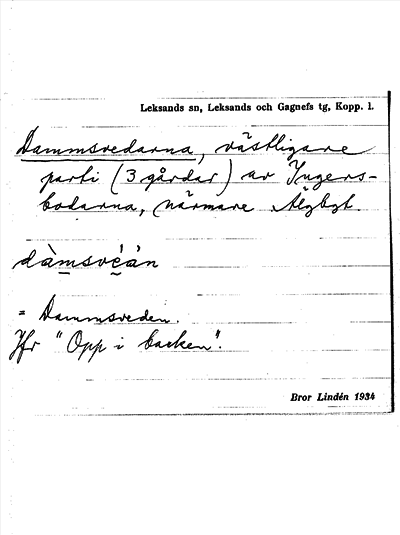 Leksands sn, Leksands och Gagnefs tg, Kopp. l.
Dammsvedarna, västligare
parti (3 gårdar) av Ingers-
bodarna, närmare
dàmsvèàn
= Dammsveden.
Jfr "Opp i backen".
Bror Lindén 1934